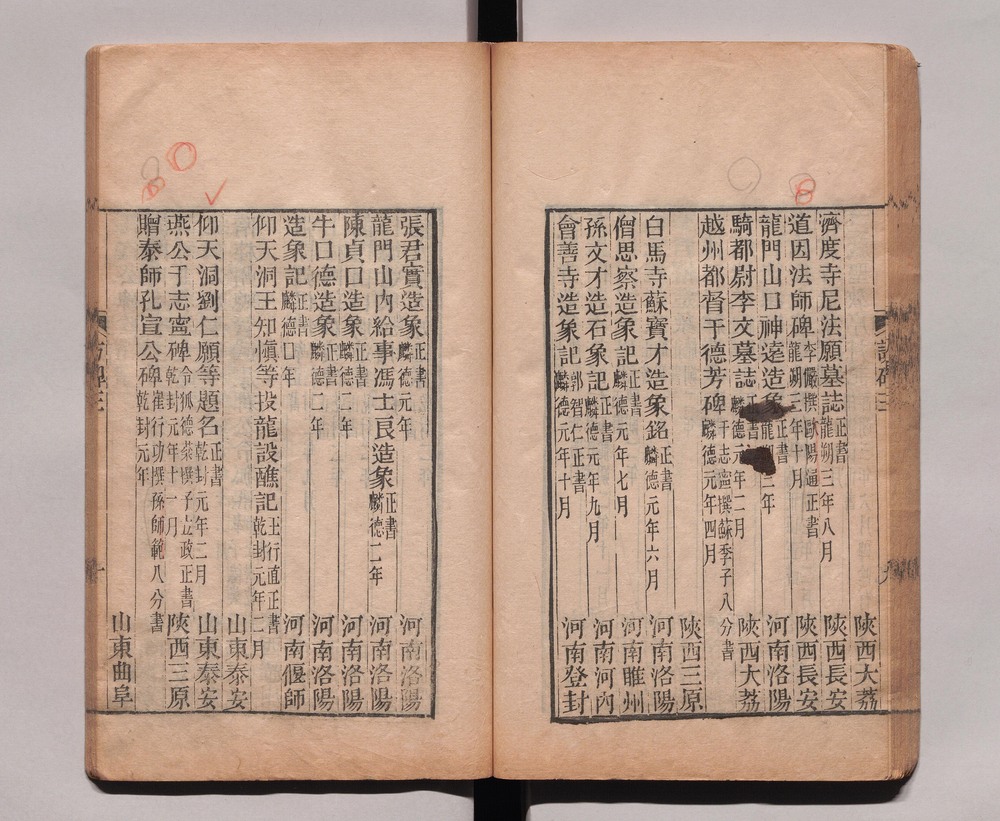 陝西大荔
濟度寺尼法願墓誌 正書 龍朔三年八月 陝西長安
道因法師碑 李儼撰歐陽通正書 龍朔三年十月 陝西長安
龍門山口神逵造象 正書 龍朔三年 河南洛陽
騎都尉李文墓誌 正書 麟德元年二月 陝西大荔
越州都督于德芳碑 于志寧撰蘇季子八分書 麟德元年四月
陝西三原
白馬寺蘇寶才造象銘 正書 麟德元年六月 河南洛陽
僧思察造象記 正書 麟德元年七月 河南睢州
孫文才造石象記 郭智仁正書 麟德元年九月 河南河內
會善寺造象記 麟德元年十月 河南登封
張君實造象 正書 麟德元年 河南洛陽
龍門山內給事馮士良造象 正書 麟德二年 河南洛陽
陳貞口造象 正書 麟德二年 河南洛陽
牛口德造象 正書 麟德二年 河南洛陽
造象記 正書 麟德口年 河南偃師
仰天洞王知慎等投龍設醮記 王行直正書 乾封元年二月
山東泰安
仰天洞劉仁願等題名 正書 乾封元年二月 山東泰安
燕公于志寧碑 令狐德棻撰子立政正書 乾封元年十一月 陝西三原
贈泰師孔宣公碑 崔行功撰孫師範八分書 乾封元年
山東曲阜